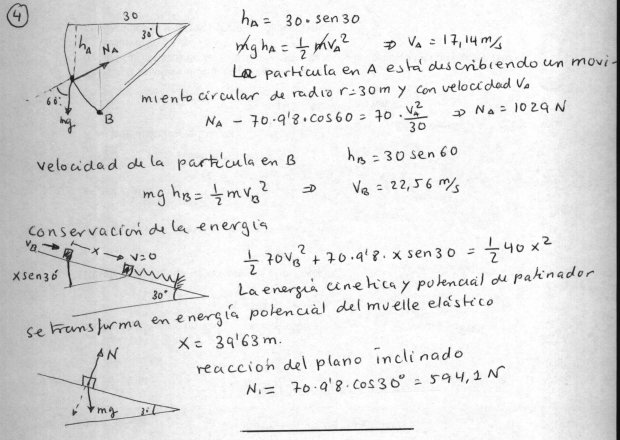 ④
30
30°
hA
NA
60°
mg
B
hA = 30·sen30
mghA = 1/2 mvA² ⇒ VA = 17,14 m/s
La partícula en A está describiendo un movi-
miento circular de radio r=30m y con velocidad VA
NA - 70·9'8·cos60 = 70·vA²/30 ⇒ NA = 1029 N
velocidad de la partícula en B hB = 30 sen60
mghB = 1/2 mvB² ⇒ VB = 22,56 m/s
conservación de la energía
VB x V=0
xsen30
30°
1/2 70VB² + 70·9'8·x sen30 = 1/2 40x²
La energía cinetica y potencial de patinador
se transforma en energía potencial del muelle elástico
x = 39'63 m.
reacción del plano inclinado
N₁ = 70·9'8·cos30° = 594,1 N
N
mg
30°